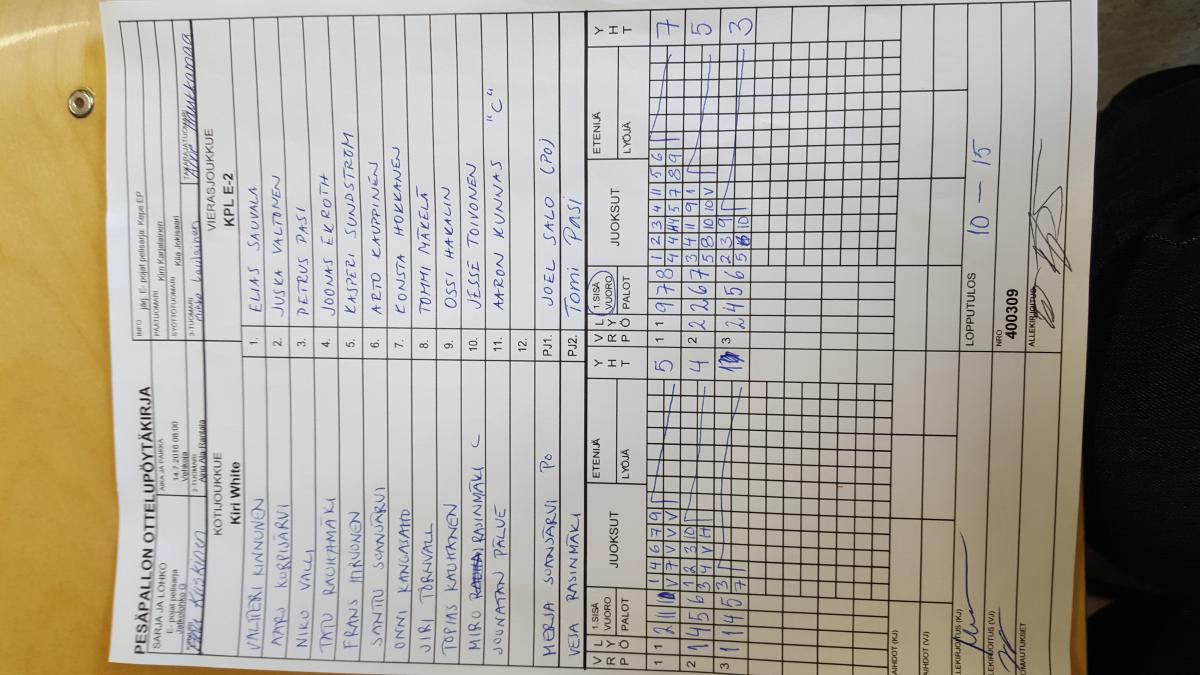 PESÄPALLON OTTELUPÖYTÄKIRJA
SARJA JA LOHKO
E- pojat pelisarja
Jatkolohko G
AIKA JA PAIKKA
14.7.2016 08:00
Vehkoja
2-TUOMARI
Aino Ala-Rantala
INFO järj. E- pojat pelisarja: Kepe EP
PÄÄTUOMARI Kim Karjalainen
SYÖTTÖTUOMARI Kiia Jokisaari
3-TUOMARI
Mikko Laulainen
TAKARAJATUOMARI
KOTIJOUKKUE
Kiri White
VIERASJOUKKUE
KPL E-2
VALTTERI KINNUNEN 1. ELIAS SAUVALA
AARO KORPIJÄRVI 2. JUSKA VALTONEN
NIKO VALLI 3. PETRUS PASI
TATU RAUHAMÄKI 4. JOONAS EKROTH
FRANS HIRVONEN 5. KASPERI SUNDSTRÖM
SANTTU SOANJÄRVI 6. ARTO KAUPPINEN
ONNI KANGASAHO 7. KONSTA HOKKANEN
JIRI TÖRNVALL 8. TOMMI MÄKELÄ
TOPIAS KAUHANEN 9. OSSI HAKALIN
MIRO RASINMÄKI C 10. JESSE TOIVONEN
JOONATAN PÄLVE 11. AARON KUNNAS "C"
12.
MERJA SOANJÄRVI PO PJ1. JOEL SALO (PO)
VESA RASINMÄKI PJ2. TOMI PASI
V L
R Y
P Ö
1.SISÄ
VUORO
PALOT
JUOKSUT
ETENIJÄ
LYÖJÄ
Y
H
T
V L
R Y
P Ö
1.SISÄ
VUORO
PALOT
JUOKSUT
ETENIJÄ
LYÖJÄ
Y
H
T
1 1 2 11 1 4 6 7 9 5 1 1 9 7 8 1 2 3 4 11 5 6 7
V 7 V V V 4 4 11 5 7 8 9
2 1 4 5 6 1 2 3 10 4 2 2 2 6 7 3 4 11 9 1 5
3 4 V H 5 8 10 10 V
3 1 1 4 5 3 1 3 2 4 5 6 2 3 9 3
7 5 10
VAIHDOT (KJ)
VAIHDOT (VJ)
ALLEKIRJOITUS (KJ)
LOPPUTULOS 10 – 15
ALLEKIRJOITUS (VJ)
NRO
400309
HUOMAUTUKSET
ALLEKIRJOITUS